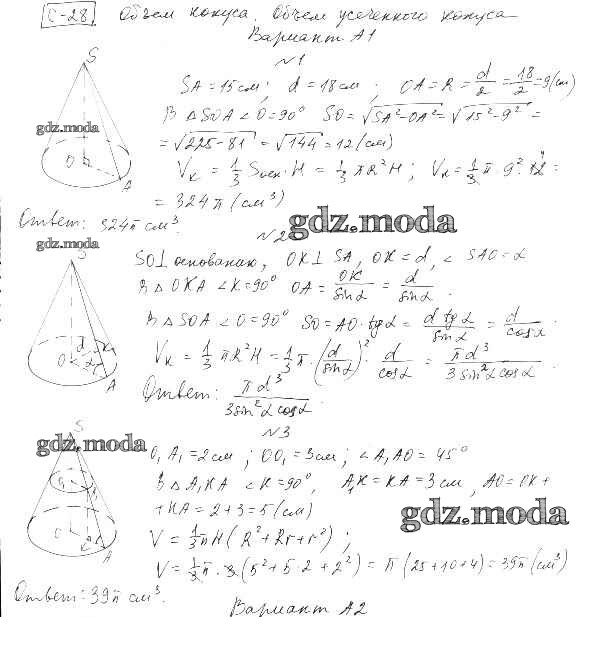 С-28. Объем конуса. Объем усеченного конуса
Вариант А1
N1
S
SA = 15 см; d = 18 см; OA = R = d/2 = 18/2 = 9 (см)
В △SOA ∠O = 90° SO = √(SA² - OA²) = √(15² - 9²) =
gdz.moda
= √(225 - 81) = √144 = 12 (см)
O
A
Vк = 1/3 Sосн · H = 1/3 πR²H; Vк = 1/3 π · 9² · 12 =
= 324π (см³)
Ответ: 324π см³.
gdz.moda
N2
gdz.moda
S
SO⊥ основанию, OK ⊥ SA, OK = d, ∠SAO = α
В △OKA ∠K = 90° OA = OK/sinα = d/sinα.
В △SOA ∠O = 90° SO = AO · tgα = d tgα/sinα = d/cosα.
d
K
O
α
A
Vк = 1/3 πR²H = 1/3 π · (d/sinα)² · d/cosα = πd³/3sin²α cosα.
Ответ: πd³/3sin²α cosα.
N3
S
gdz.moda
O₁A₁ = 2 см; OO₁ = 3 см; ∠A₁AO = 45°
В △A₁KA ∠K = 90°, A₁K = KA = 3 см, AO = OK +
+ KA = 2 + 3 = 5 (см)
gdz.moda
O
K
A
V = 1/3 πH (R² + Rr + r²);
V = 1/3 π · 3 (5² + 5 · 2 + 2²) = π (25 + 10 + 4) = 39π (см³)
Ответ: 39π см³.
Вариант А2